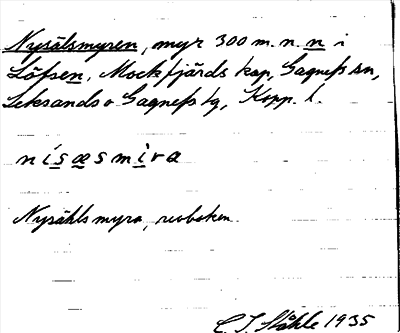 Nysälsmyren, myr 300 m. n. n i
Löfsen, Mockfjärds kap, Gagnefs sn,
Leksands o Gagnefs tg, Kopp. l.
nísæsmìra
Nysähls myra, revboken.
C. I. Ståhle 1935